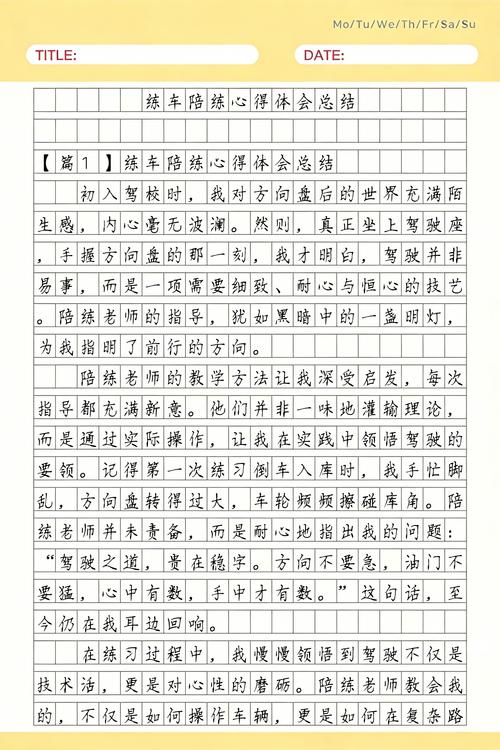 Mo/Tu/We/Th/Fr/Sa/Su
TITLE: DATE:
练车陪练心得体会总结
【篇1】练车陪练心得体会总结
初入驾校时，我对方向盘后的世界充满陌
生感，内心毫无波澜。然则，真正坐上驾驶座
，手握方向盘的那一刻，我才明白，驾驶并非
易事，而是一项需要细致、耐心与恒心的技艺
。陪练老师的指导，犹如黑暗中的一盏明灯，
为我指明了前行的方向。
陪练老师的教学方法让我深受启发，每次
指导都充满新意。他们并非一味地灌输理论，
而是通过实际操作，让我在实践中领悟驾驶的
要领。记得第一次练习倒车入库时，我手忙脚
乱，方向盘转得过大，车轮频频擦碰库角。陪
练老师并未责备，而是耐心地指出我的问题：
“驾驶之道，贵在稳字。方向不要急，油门不
要猛，心中有数，手中才有数。”这句话，至
今仍在我耳边回响。
在练习过程中，我慢慢领悟到驾驶不仅是
技术活，更是对心性的磨砺。陪练老师教会我
的，不仅是如何操作车辆，更是如何在复杂路